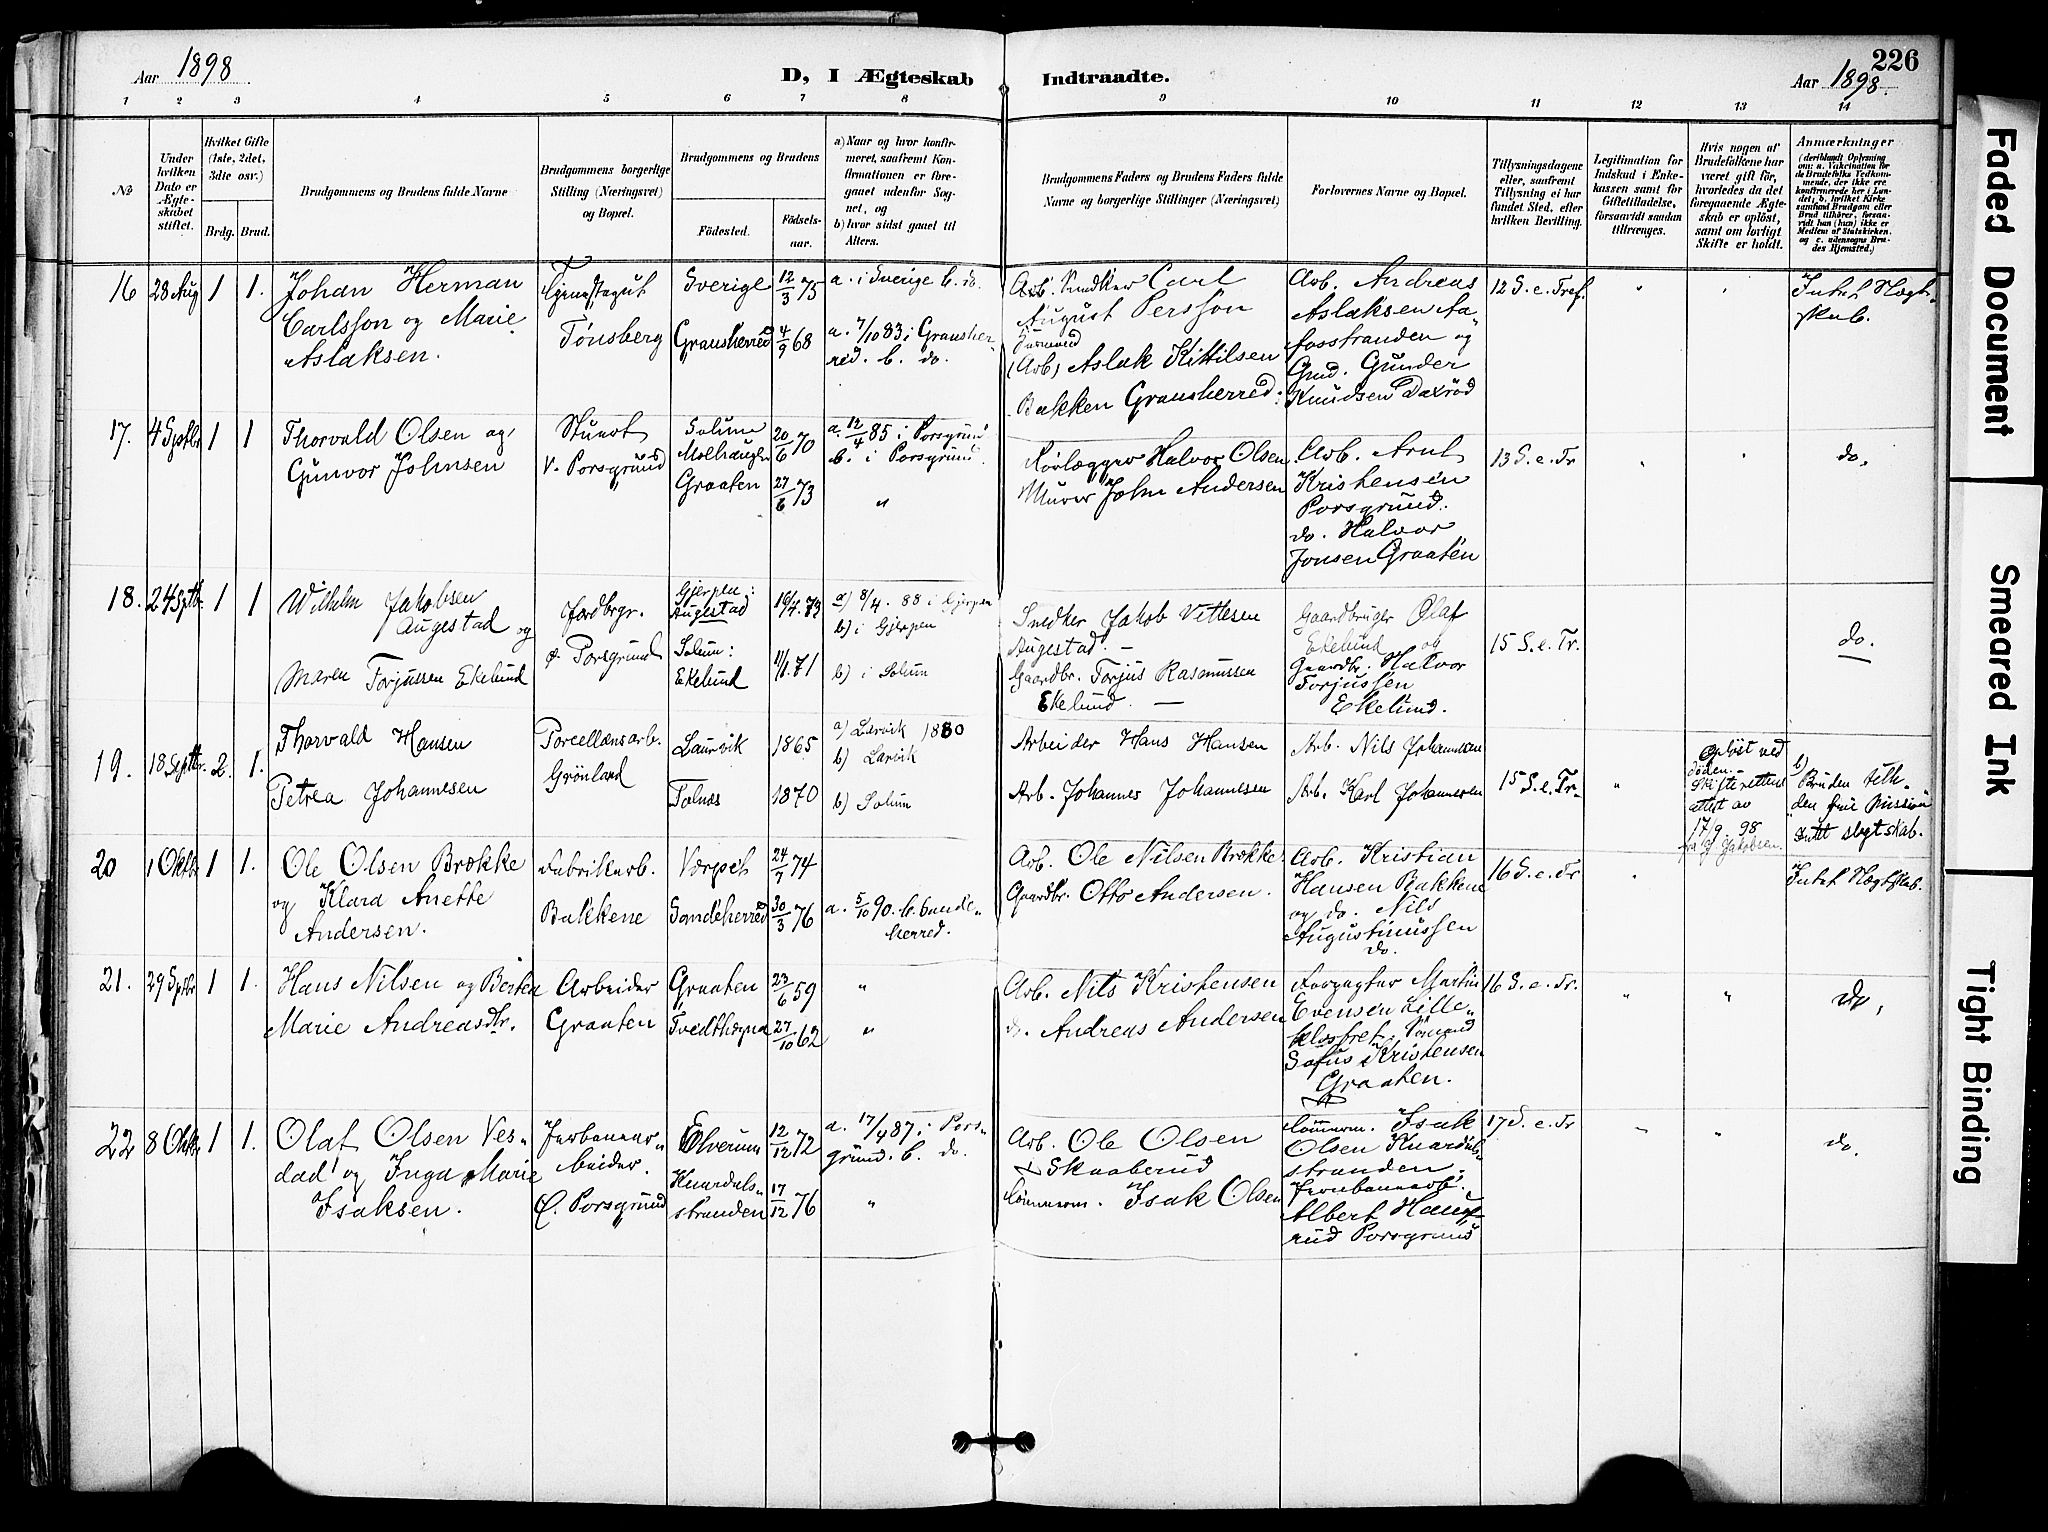 226
Aar 1898
D, I Ægteskab Indtraadte.
Aar 1898.
1 2 3 4 5 6 7 8 9 10 11 12 13 14
No
Under hvilken Dato er Ægteskabet stiftet.
Hvilket Gifte (1ste, 2det, 3dte osv.)
Brdg. Brud.
Brudgommens og Brudens fulde Navne
Brudgommens borgerlige Stilling (Næringsvei) og Bopæl.
Brudgommens og Brudens
Fødested. Fødselsaar.
a) Naar og hvor konfirmeret, saafremt Konfirmationen er foregaaet udenfor Sognet, og
b) hvor sidst gaaet til Alters.
Brudgommens Faders og Brudens Faders fulde Navne og borgerlige Stillinger (Næringsvei)
Forlovernes Navne og Bopæl.
Tillysningsdagene eller, saafremt Tillysning ei har fundet Sted, efter hvilken Bevilling.
Legitimation for Indskud i Enkekassen samt for Giftetilladelse, forsaavidt saadan tiltrænges.
Hvis nogen af Brudefolkene har været gift før, hvorledes da det foregaaende Ægteskab er opløst, samt om lovligt Skifte er holdt.
Anmærkninger
(deriblandt Oplysning om: a. Vakcination for de Brudefolks Vedkommende, der ikke ere konfirmerede her i Landet; b. hvilket Kirkesamfund Brudgom eller Brud tilhører, forsaavidt han (hun) ikke er Medlem af Statskirken, og c. udensogns Brudes Hjemsted.)
16 28 Aug 1 1.
Johan Herman
Carlsson og Marie
Aslaksen.
Tønsberg
Sverige 12/3 75
Gransherred 4/9 68
a. i Sverige b. do.
a. 7/10 83 i Gransher-
red. b. do.
Arb. Snedker Carl
August Persson
(Arb) Aslak Kittilsen
Bakken Gransherred.
Arb. Andreas
Aslaksen Aa-
fosstranden og
Grud. Gunder
Knudsen Daxrød
12 S. e. Tref.
" "
Intet Slægt-
skab.
17. 4 Septbr 1 1
Thorvald Olsen og
Gunvor Johnsen
Stuert
V. Porsgrund
Solum
Molhaugen 20/6 70
Graaten 27/6 73
a. 12/4 85 i Porsgrund
b. i Porsgrund.
"
Rørlægger Halvor Olsen
Murer John Andersen
Arb. Arnt
Kristensen
Porsgrund.
do. Halvor
Jonsen Graaten
13 S. e. Tr
" "
do.
18. 24 Septbr. 1 1
Wilhelm Jakobsen
Augestad og
Maren Torjussen Ekelund
Jordbrgr.
p. Porsgrund
Gjerpen:
Augestad 16/7.73
Solum:
Ekelund 11/1.71
a) 8/4. 88 i Gjerpen
b) i Gjerpen
b) i Solum
Snedker Jakob Vetlesen
Augestad. —
Gaardbr. Torjus Rasmussen
Ekelund. —
Gaardbruger Olaf
Ekelund og
Gaardbr. Halvor
Torjussen
Ekelund.
15 S. e. Tr.
do.
19. 18 Septbr. 2. 1.
Thorvald Hansen
Petrea Johannesen
Porcellænsarb.
Grönland
Laurvik 1865
Tolnæs 1870
a) Larvik 1880
b) Larvik
b) Solum
Arbeider Hans Hansen
Arb. Johannes Johannesen
Arb. Nils Johannesen
Arb. Karl Johannesen
15 S. e. Tr.
"
Opløst ved
døden.
Skifterettens
attest av
17/9 98
b)
Bruden tilh.
den frie Mission
Intet slegtskab.
20 1 Oktbr 1 1.
Ole Olsen Brække
og Klara Anette
Andersen.
Fabrikarb.
Bakkene
Værpet 24/7 74
Sandeherred 30/3 76
a. 5/10 90. b. Sande-
herred.
Arb. Ole Nilsen Brække
Gaardbr. Otto Andersen.
Arb. Kristian
Hansen Bakkene
og do. Nils
Augustinussen
do.
16 S. e. Tr
"
Intet Slægtskab.
21. 29 Septbr 1 1.
Hans Nilsen og Berthe
Marie Andreasdtr.
Arbeider
Graaten
Graaten 23/6 59
Tvedthægna 27/10 62
"
"
Arb. Nils Kristensen
do. Andreas Andersen
Forpagter Martin
Evensen Lille-
klostret. Sømand
Sofus Kristensen
Graaten.
16 S. e. Tr.
" "
do.
22 8 Oktbr 1 1.
Olaf Olsen Ves-
dad og Inga Marie
Isaksen.
Jernbanear-
beider.
Ø. Porsgrund
Elverum 12/12 72
Knardals-
stranden 17/12 76
a. 17/4 87 i Pors-
grund. b. do.
"
Arb. Ole Olsen
Skaaberud
Tømmerm. Isak Olsen
Tømmerm. Isak
Olsen Knardals-
stranden.
Jernbanearb.
Albert Haug-
rud Porsgrund
17 S. e. Tr
" "
do.
Faded Document
Smeared Ink
Tight Binding